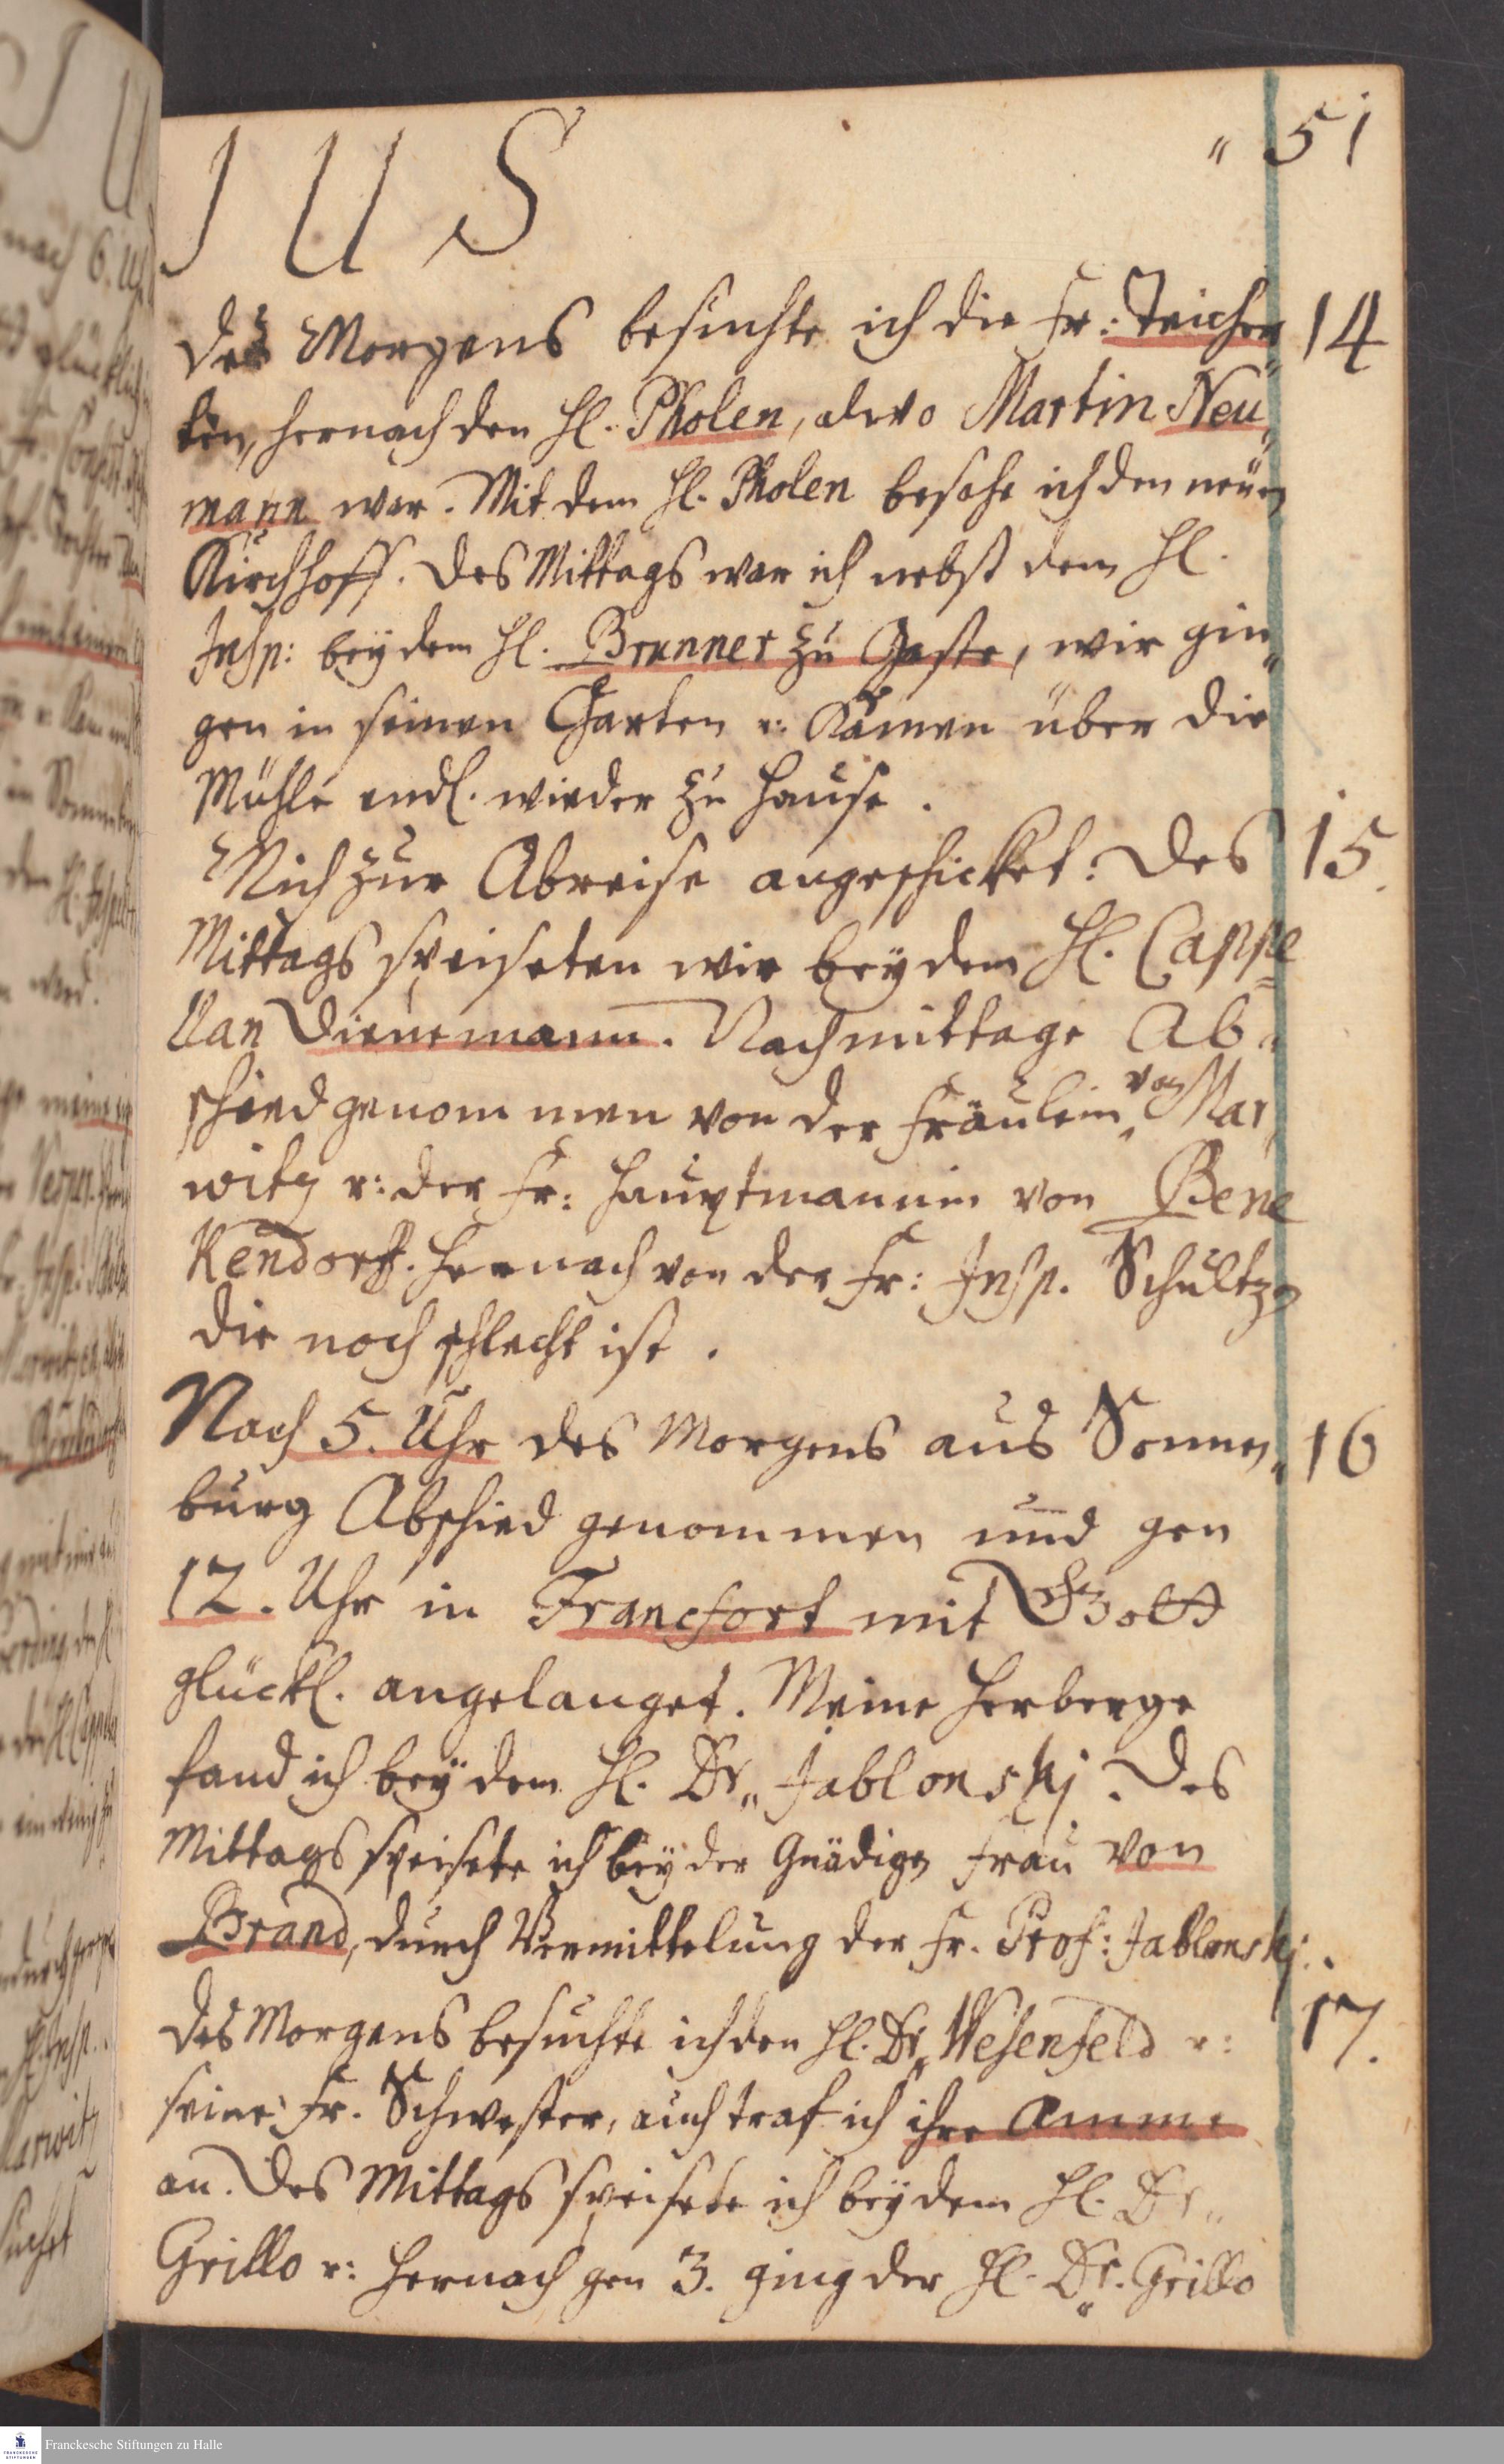 " 51
J U S
Des Morgens besuchte ich die Fr: Teicher 14
tin, hernach den H. Pholen, alwo Martin Neu
mann war. Mit dem H. Pholen besahe ich den neuen
Kirchhoff. Des Mittags war ich nebst dem H.
Insp: beÿ dem H. Brunner zu Gaste, wir gin„
gen in seinen Garten u: kamen über die
Mühle endl. wieder zu Hause.
Mich zur Abreise angeschicket. Des 15.
Mittags speiseten wir beÿ dem H. Cappe
llan Dienemann. Nachmittage Ab„
schied genommen von der Fräulein von Mar
witz u: der Fr: Hauptmannin von Bene
Kendorff. Hernach von der Fr: Insp. Schultzen
die noch schlecht ist.
Nach 5. Uhr des Morgens aus Sonnen„ 16
burg Abschied genommen und gen
12. Uhr in Francfort mit Gott
glückl. angelanget. Meine Herberge
fand ich beÿ dem H. Dr„ Jablonskj. Des
Mittags speisete ich beÿ der Gnädigen Frau von
Brand, durch Vermittelung der Fr. Prof: Jablonskj.
Des Morgens besuchte ich den H. Dr„ Wesenfeld u: 17.
seine Fr. Schwester, auch traf ich ihre Amme
an. Des Mittags speisete ich beÿ dem H. Dr„
Grillo u: hernach gen 3. ging der H. Dr. Grillo
Franckesche Stiftungen zu Halle